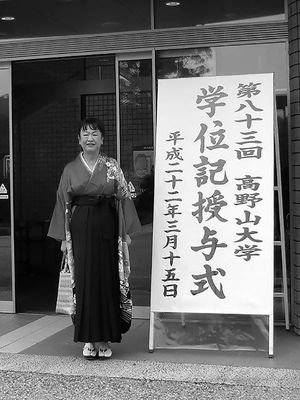 第八十三回 高野山大学
学位記授与式
平成二十二年三月十五日